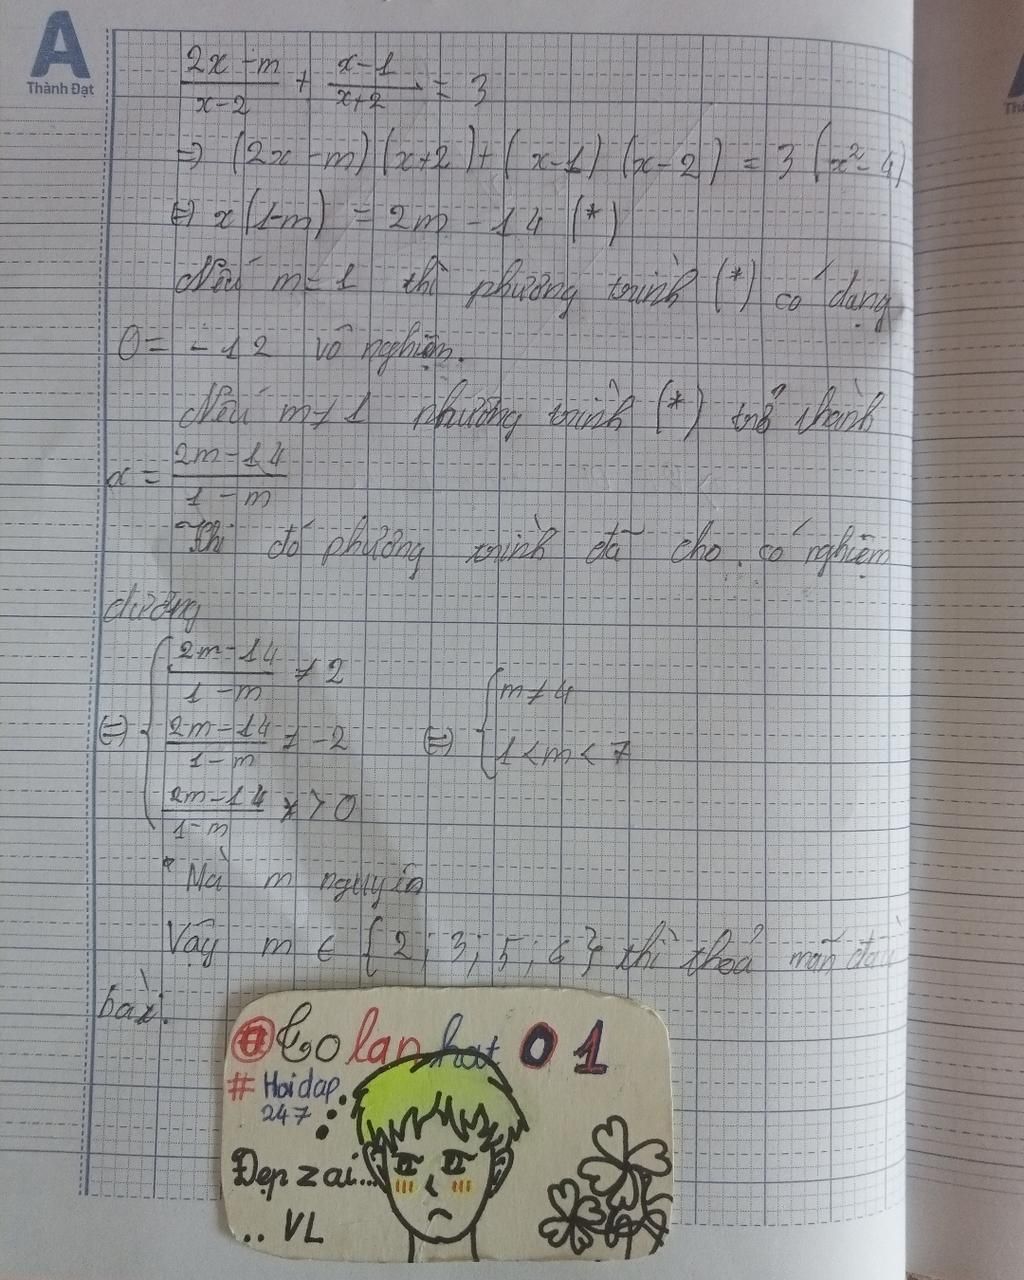 A
Thành Đạt
(2x-m)/(x-2) + (x-1)/(x+2) = 3
=> (2x-m)(x+2)+(x-1)(x-2) = 3(x²-4)
<=> x(1-m) = 2m-14 (*)
Nếu m=1 thì phương trình (*) có dạng
0= -12 vô nghiệm.
Nếu m≠1 phương trình (*) trở thành
x = (2m-14)/(1-m)
Khi đó phương trình đã cho có nghiệm
dương
<=> { (2m-14)/(1-m) ≠ 2
(2m-14)/(1-m) ≠ -2 <=> { m≠4
(2m-14)/(1-m) > 0 1<m<7
* Mà m nguyên
Vậy m ∈ {2; 3; 5; 6} thì thoả mãn đầu
bài.
lan hat 01
# Hoidap
247
Đẹp zai...
.. VL